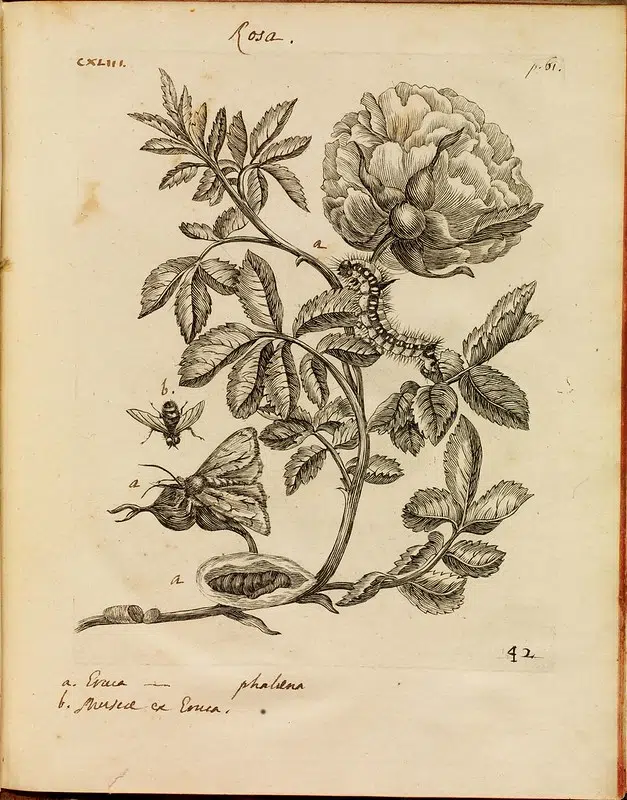 Rosa.
CXLIII.
p. 61.
a
b.
a
a
42
a. Eruca — phalæna
b. Muscæ ex Eruca.